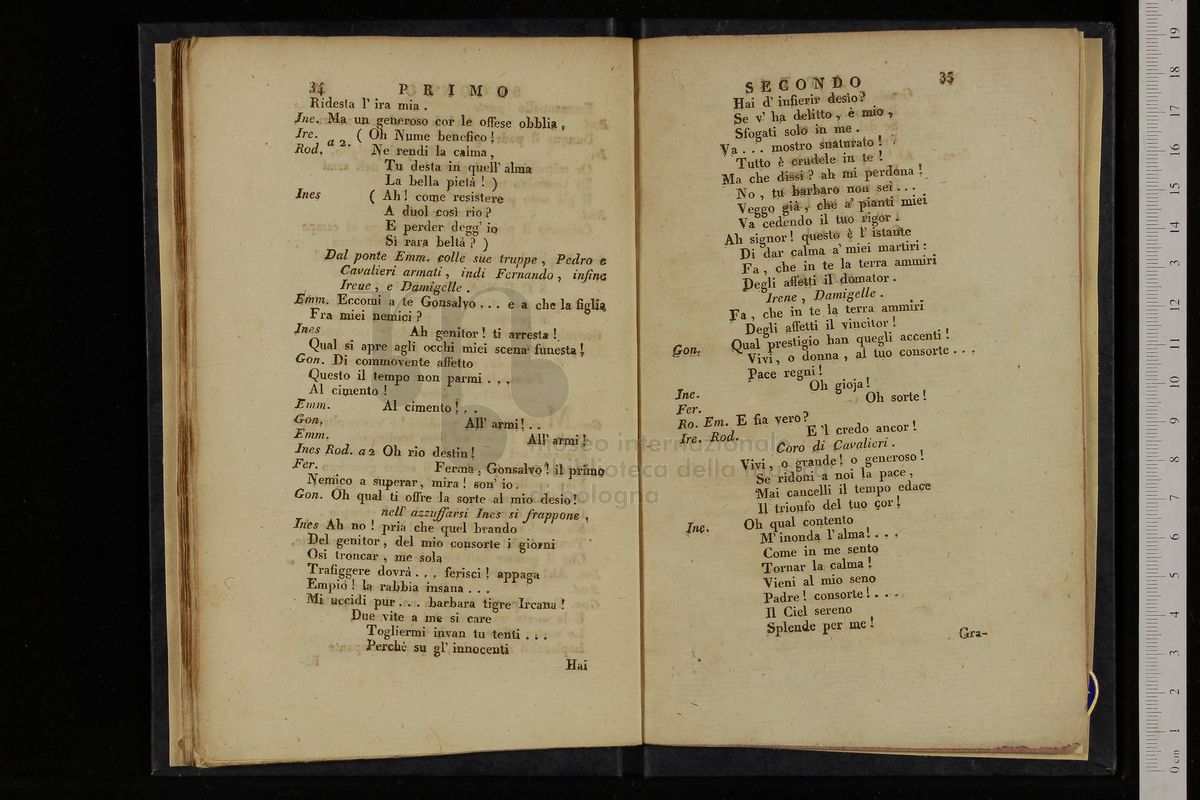 34 PRIMO
Ridesta l' ira mia .
Ine. Ma un generoso cor le offese obblia ,
Ire. ( Oh Nume benefico !
Rod. a 2. Ne rendi la calma ,
Tu desta in quell' alma
La bella pietà ! )
Ines ( Ah ! come resistere
A duol così rio ?
E perder degg' io
Sì rara beltà ? )
Dal ponte Emm. colle sue truppe , Pedro e
Cavalieri armati , indi Fernando , infine
Irene , e Damigelle .
Emm. Eccomi a te Gonsalvo . . . e a che la figlia
Fra miei nemici ?
Ines Ah genitor ! ti arresta !
Qual si apre agli occhi miei scena funesta !
Gon. Di commovente affetto
Questo il tempo non parmi . . .
Al cimento !
Emm. Al cimento ! . .
Gon. All' armi ! . .
Emm. All' armi !
Ines Rod. a 2 Oh rio destin !
Fer. Ferma , Gonsalvo ! il primo
Nemico a superar , mira ! son' io .
Gon. Oh qual ti offre la sorte al mio desio !
nell' azzuffarsi Ines si frappone ,
Ines Ah no ! pria che quel brando
Del genitor , del mio consorte i giorni
Osi troncar , me sola
Trafiggere dovrà . . . ferisci ! appaga
Empio ! la rabbia insana . . .
Mi uccidi pur . . . barbara tigre Ircana !
Due vite a me sì care
Togliermi invan tu tenti . . .
Perchè su gl' innocenti
Hai
SECONDO 35
Hai d' infierir desìo ?
Se v' ha delitto , è mio ,
Sfogati solo in me .
Va . . . mostro snaturato !
Tutto è crudele in te !
Ma che dissi ? ah mi perdona !
No , tu barbaro non sei . . .
Veggo già , che a' pianti miei
Va cedendo il tuo rigor .
Ah signor ! questo è l' istante
Di dar calma a' miei martiri :
Fa , che in te la terra ammiri
Degli affetti il domator .
Irene , Damigelle .
Fa , che in te la terra ammiri
Degli affetti il vincitor !
Gon. Qual prestigio han quegli accenti !
Vivi , o donna , al tuo consorte . . .
Pace regni !
Ine. Oh gioja !
Fer. Oh sorte !
Ro. Em. E fia vero ?
Ire. Rod. E 'l credo ancor !
Coro di Cavalieri .
Vivi , o grande ! o generoso !
Se ridoni a noi la pace ,
Mai cancelli il tempo edace
Il trionfo del tuo cor !
Ine. Oh qual contento
M' inonda l' alma ! . . .
Come in me sento
Tornar la calma !
Vieni al mio seno
Padre ! consorte ! . . .
Il Ciel sereno
Splende per me !
Gra-
museo internazionale
biblioteca della musica
di bologna
0 cm 1 2 3 4 5 6 7 8 9 10 11 12 13 14 15 16 17 18 19